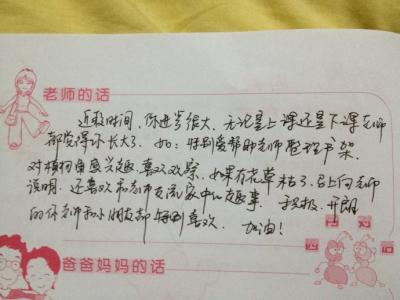 老师的话
近段时间、你进步很大、无论是上课还是下课老师
都觉得你长大了. 如:特别爱帮助老师整理书架.
对植物角感兴趣.喜欢观察.如果有花草枯了.马上向老师
说明.还喜欢和老师交流家中的趣事. 积极、开朗
的你老师和小朋友都特别喜欢. 加油!
爸爸妈妈的话